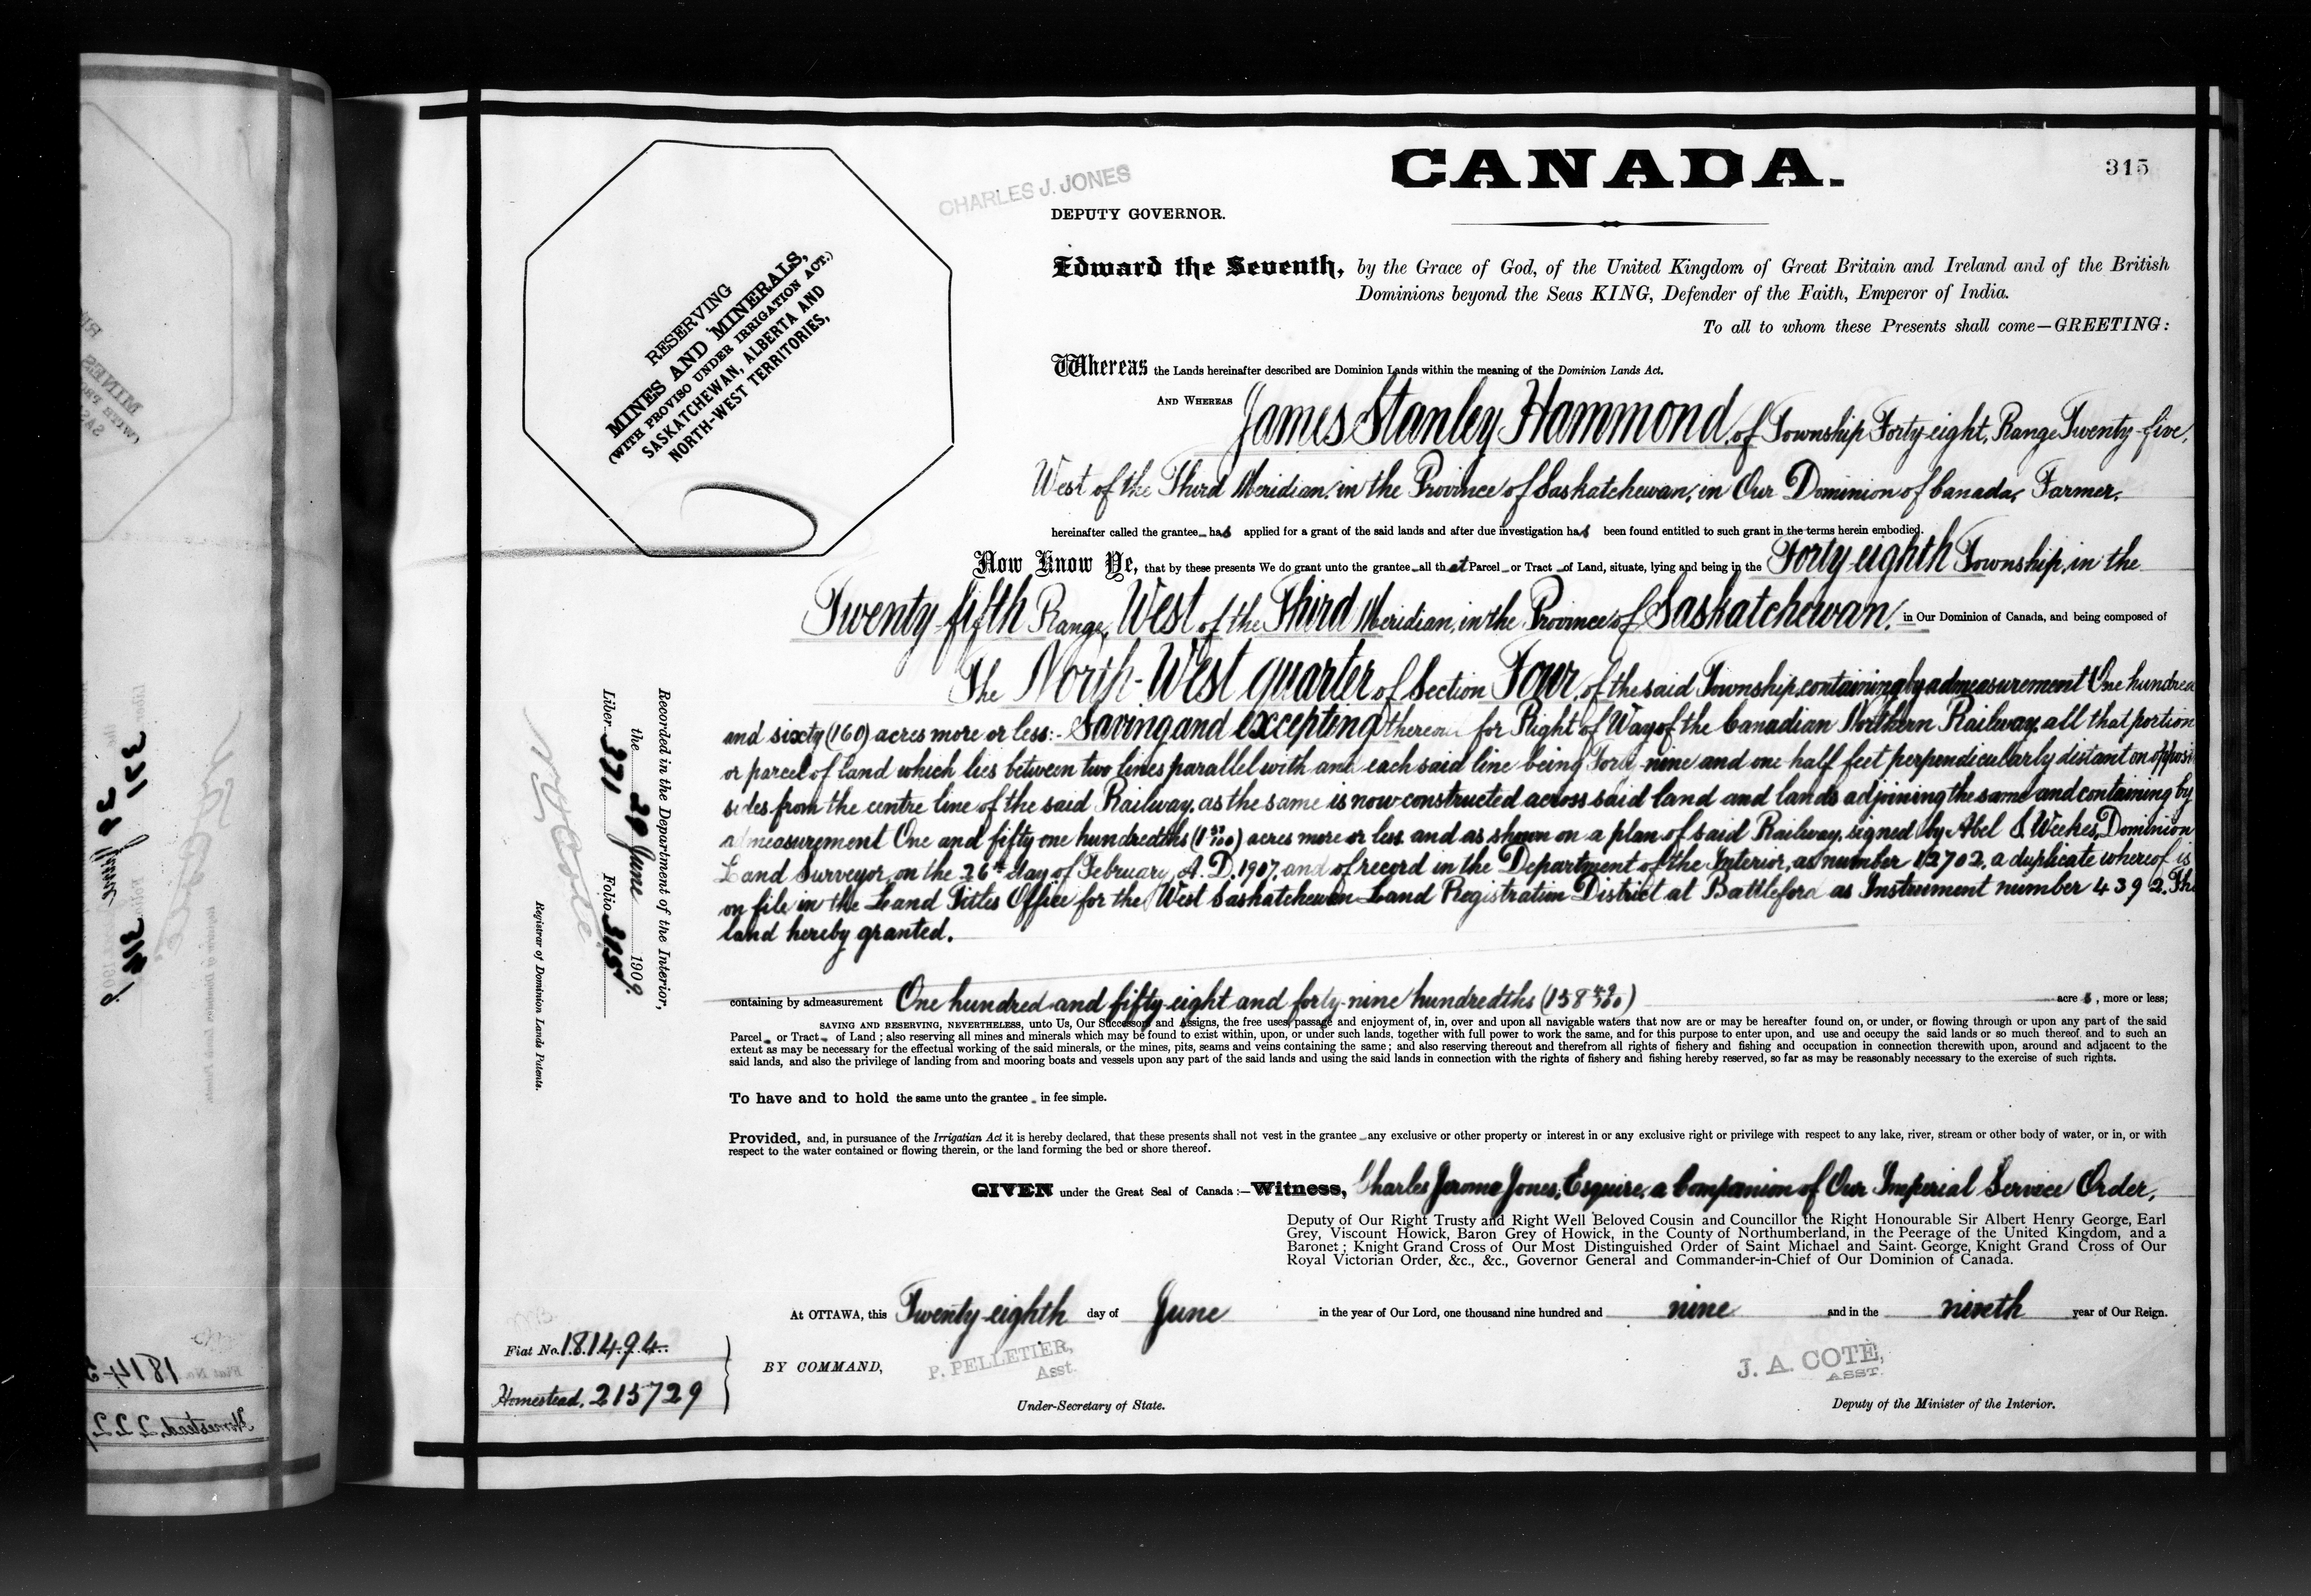 CANADA.
315
CHARLES J. JONES
DEPUTY GOVERNOR.
RESERVING
MINES AND MINERALS,
(WITH PROVISO UNDER IRRIGATION ACT.)
SASKATCHEWAN, ALBERTA AND
NORTH-WEST TERRITORIES,
Edward the Seventh, by the Grace of God, of the United Kingdom of Great Britain and Ireland and of the British
Dominions beyond the Seas KING, Defender of the Faith, Emperor of India.
To all to whom these Presents shall come—GREETING:
Whereas the Lands hereinafter described are Dominion Lands within the meaning of the Dominion Lands Act.
AND WHEREAS James Stanley Hammond, of Township Forty-eight, Range Twenty-five,
West of the Third Meridian, in the Province of Saskatchewan, in Our Dominion of Canada, Farmer,
hereinafter called the grantee has applied for a grant of the said lands and after due investigation has been found entitled to such grant in the terms herein embodied.
Now Know Ye, that by these presents We do grant unto the grantee all that Parcel or Tract of Land, situate, lying and being in the Forty-eighth Township, in the
Twenty-fifth Range, West of the Third Meridian, in the Province of Saskatchewan, in Our Dominion of Canada, and being composed of
The North-West quarter of Section Four, of the said Township, containing by admeasurement One hundred
and sixty (160) acres more or less:- Saving and excepting for Right of Way of the Canadian Northern Railway, all that portion
or parcel of land which lies between two lines parallel with and each said line being Forty-nine and one half feet perpendicularly distant on
sides from the centre line of the said Railway, as the same is now constructed across said land and lands adjoining the same and containing by
admeasurement One and fifty one hundredths (1 51/100) acres more or less and as shown on a plan of said Railway, signed by Abel S. Weekes, Dominion
Land Surveyor, on the 26th day of February, A.D. 1907, and of record in the Department of the Interior, as number 12702, a duplicate whereof is
on file in the Land Titles Office for the West Saskatchewan Land Registration District at Battleford as Instrument number 4392. The
land hereby granted.
containing by admeasurement One hundred and fifty-eight and forty-nine hundredths (158 49/100) acres, more or less;
SAVING AND RESERVING, NEVERTHELESS, unto Us, Our Successors and Assigns, the free uses, passage and enjoyment of, in, over and upon all navigable waters that now are or may be hereafter found on, or under, or flowing through or upon any part of the said
Parcel or Tract of Land; also reserving all mines and minerals which may be found to exist within, upon, or under such lands, together with full power to work the same, and for this purpose to enter upon, and use and occupy the said lands or so much thereof and to such an
extent as may be necessary for the effectual working of the said minerals, or the mines, pits, seams and veins containing the same; and also reserving thereout and therefrom all rights of fishery and fishing and occupation in connection therewith upon, around and adjacent to the
said lands, and also the privilege of landing from and mooring boats and vessels upon any part of the said lands and using the said lands in connection with the rights of fishery and fishing hereby reserved, so far as may be reasonably necessary to the exercise of such rights.
To have and to hold the same unto the grantee in fee simple.
Provided, and, in pursuance of the Irrigation Act it is hereby declared, that these presents shall not vest in the grantee any exclusive or other property or interest in or any exclusive right or privilege with respect to any lake, river, stream or other body of water, or in, or with
respect to the water contained or flowing therein, or the land forming the bed or shore thereof.
GIVEN under the Great Seal of Canada:—Witness, Charles Jerome Jones, Esquire, a Companion of Our Imperial Service Order,
Deputy of Our Right Trusty and Right Well Beloved Cousin and Councillor the Right Honourable Sir Albert Henry George, Earl
Grey, Viscount Howick, Baron Grey of Howick, in the County of Northumberland, in the Peerage of the United Kingdom, and a
Baronet; Knight Grand Cross of Our Most Distinguished Order of Saint Michael and Saint George, Knight Grand Cross of Our
Royal Victorian Order, &c., &c., Governor General and Commander-in-Chief of Our Dominion of Canada.
At OTTAWA, this Twenty-eighth day of June in the year of Our Lord, one thousand nine hundred and nine and in the ninth year of Our Reign.
BY COMMAND,
P. PELLETIER,
Asst.
Under-Secretary of State.
J. A. COTÉ,
ASST.
Deputy of the Minister of the Interior.
Fiat No. 181494
Homestead, 215729
Recorded in the Department of the Interior,
the 29 June 1909.
Liber 371 Folio 315
Registrar of Dominion Lands Patents.